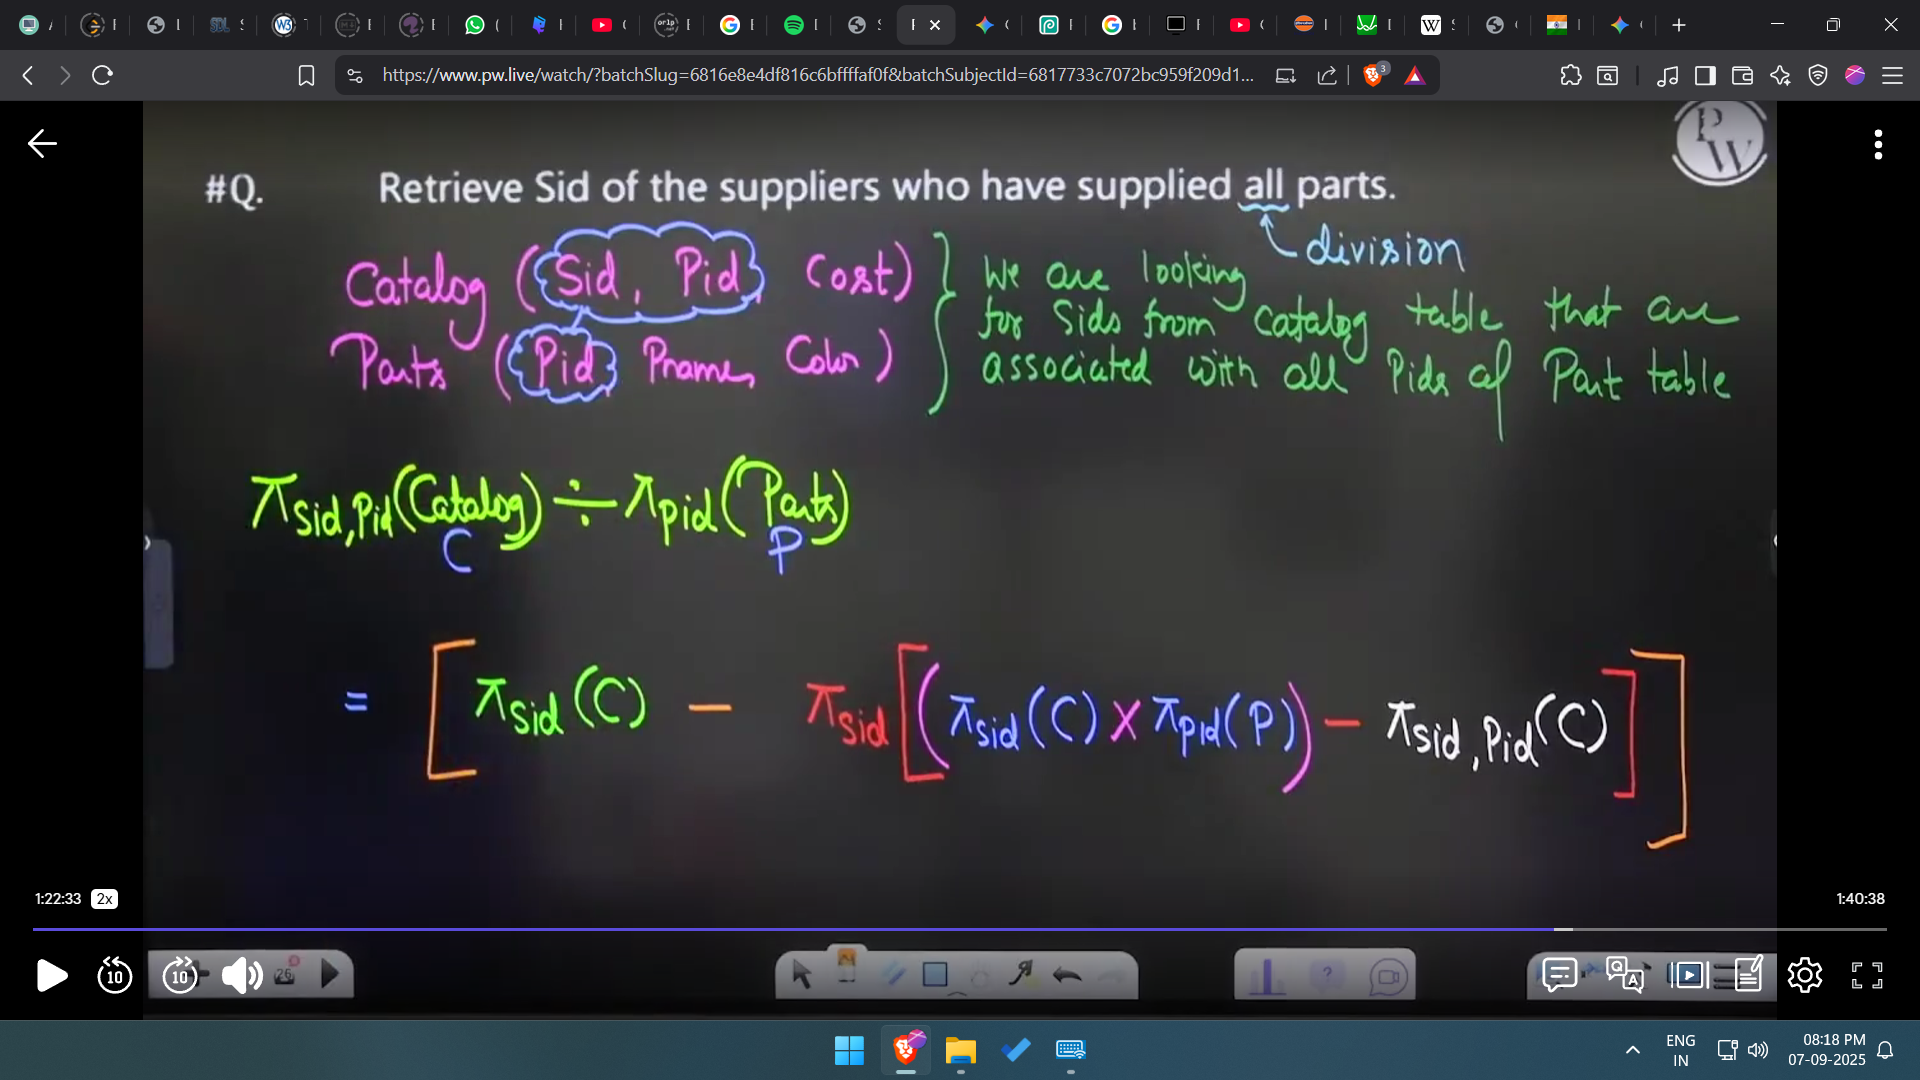 https://www.pw.live/watch/?batchSlug=6816e8e4df816c6bffffaf0f&batchSubjectId=6817733c7072bc959f209d1...
3
PW
#Q. Retrieve Sid of the suppliers who have supplied all parts.
division
Catalog (Sid, Pid, Cost)
Parts (Pid, Pname, Color)
We are looking
for Sids from Catalog table that are
associated with all Pids of Part table
πsid,Pid(Catalog) ÷ πpid(Parts)
C P
= [πsid(C) - πsid[(πsid(C) X πpid(P)) - πsid,Pid(C)]]
1:22:33 2x 1:40:38
10 10 26
ENG 08:18 PM
IN 07-09-2025